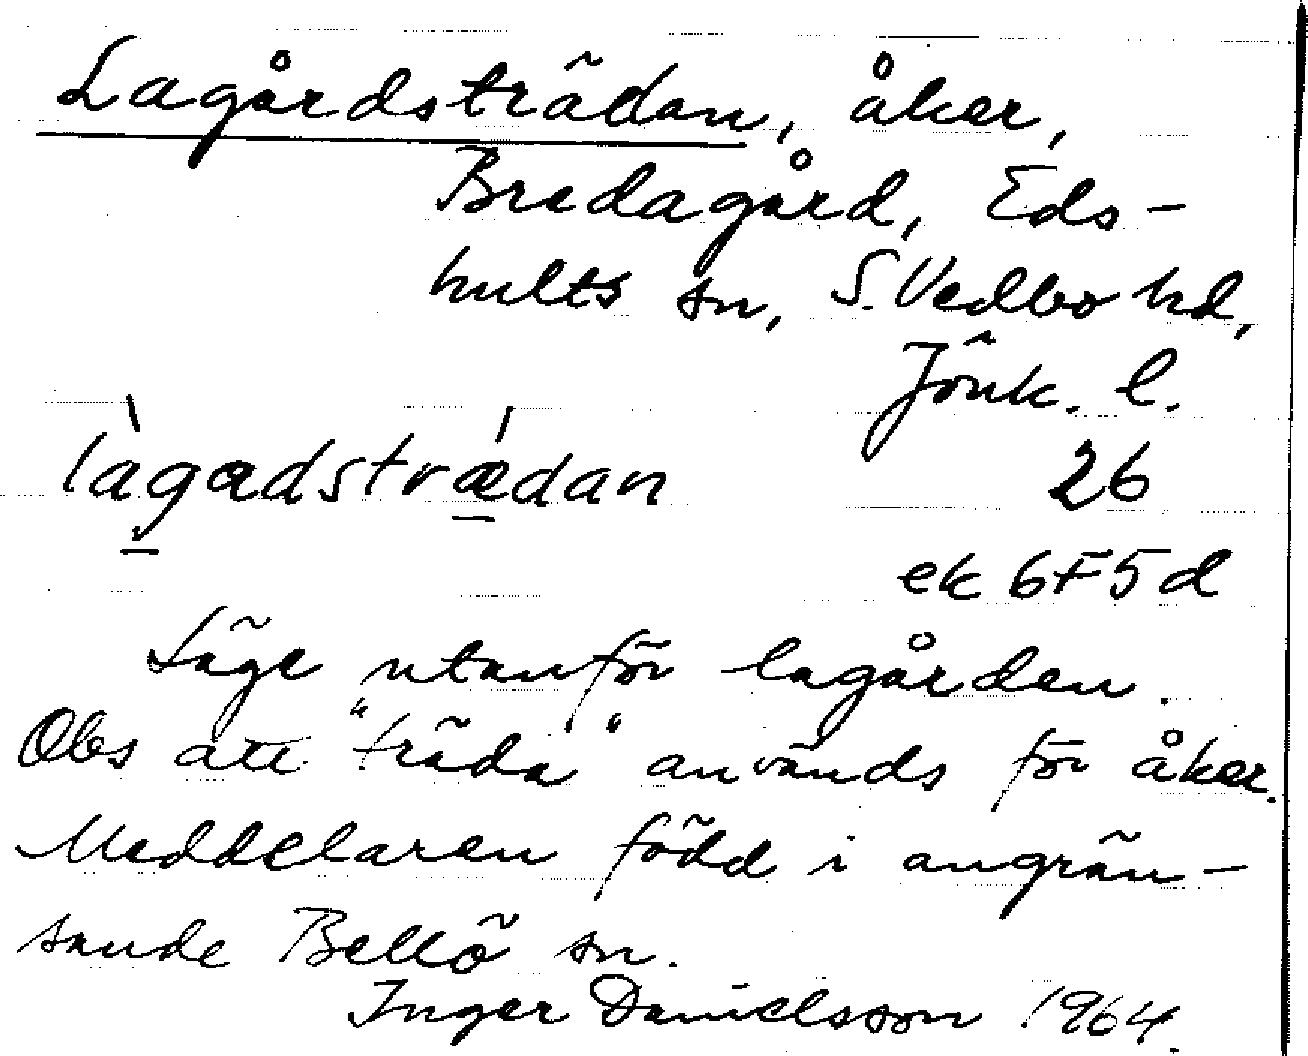 Lagårdsträdan, åker,
Bredagård, Eds-
hults sn, S. Vedbo hd,
Jönk. l.
làgadstrǽdan 26
ek 6F5d
Läge utanför lagården.
Obs att "träda" används för åker.
Meddelaren född i angrän-
sande Bellö sn.
Inger Danielsson 1964.